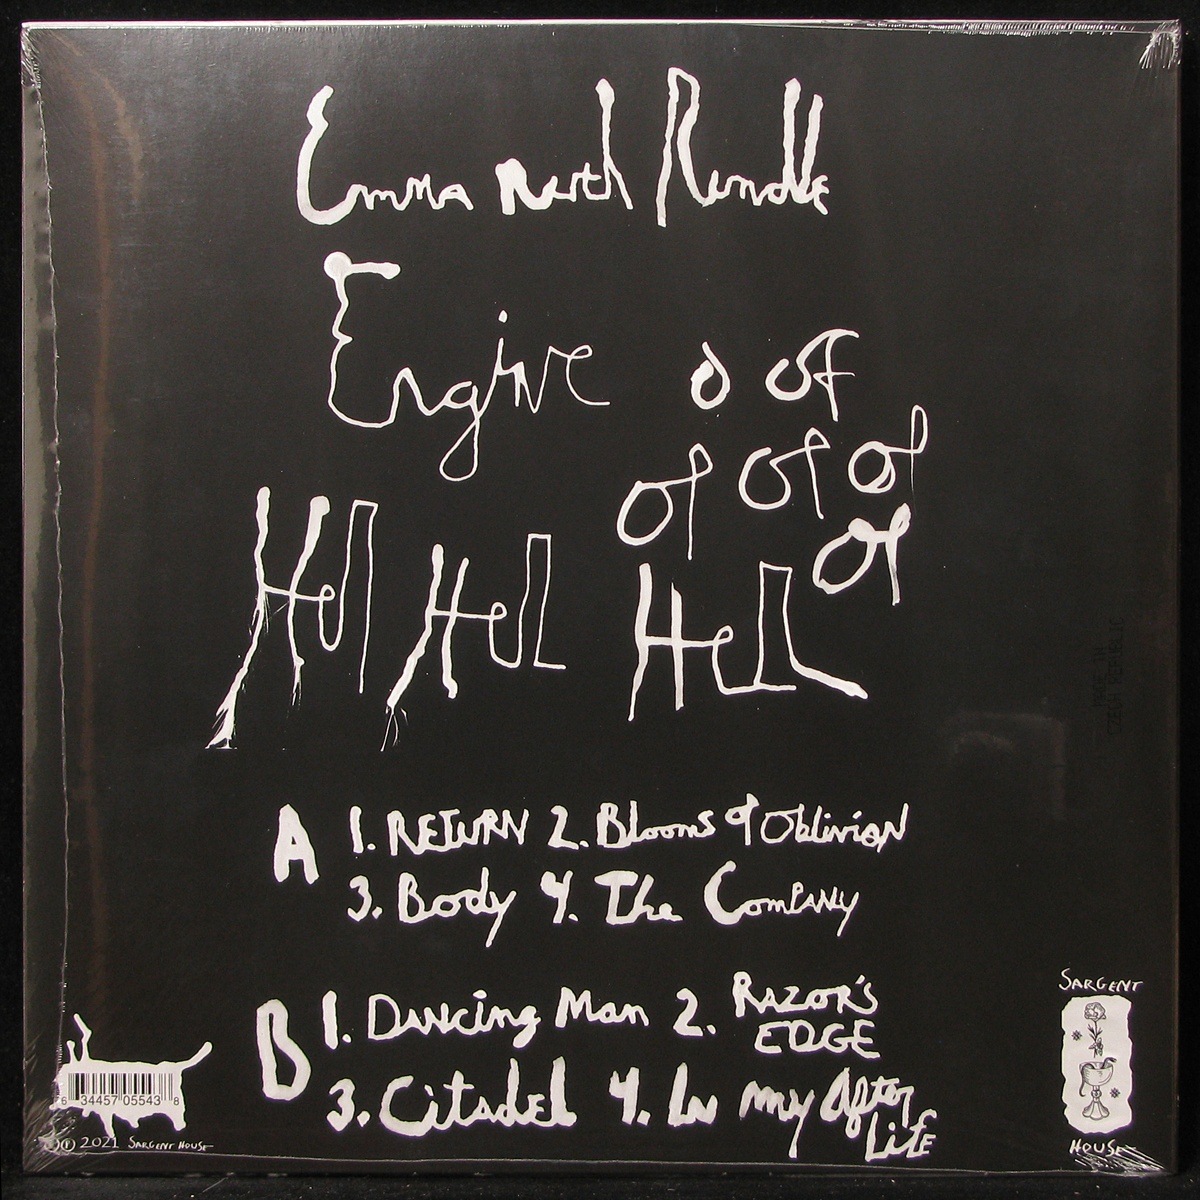 Emma Ruth Rundle
Engine o of
of of of
of
Hell Hell Hell
A 1. RETURN 2. Blooms of Oblivion
3. Body 4. The Company
B 1. Dancing Man 2. RAZOR'S
EDGE
3. Citadel 4. In my After
Life
6 34457 05543 8
© ℗ 2021 SARGENT HOUSE
SARGENT
HOUSE
MADE IN
CZECH REPUBLIC